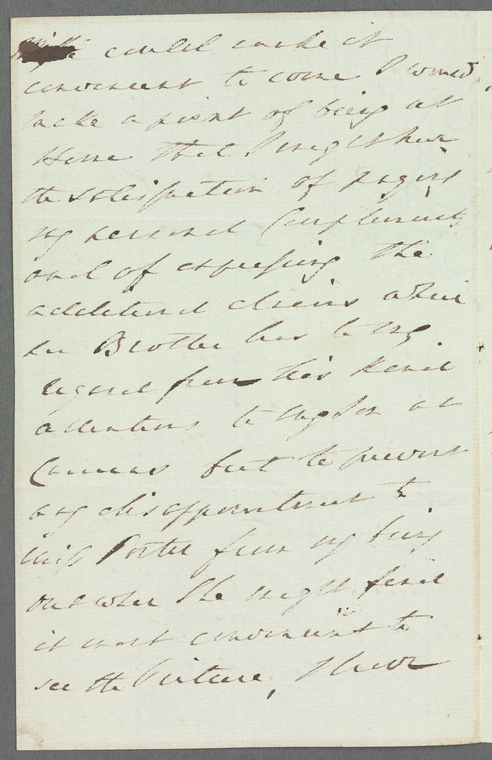 could make it
convenient to come I would
make a point of being at
Home that I might have
the satisfaction of paying
my personal Compliments
and of expressing the
additional claims which
her Brother has to my
regard from his kind
attentions to my Son at
but to prevent
any disappointment to
Miss Porter from my being
out when She might find
it most convenient to
see the Picture, I have